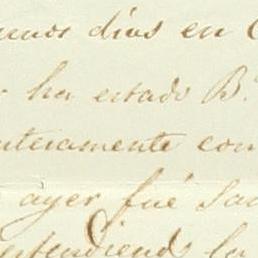 uenos días en
ha estado B.
nteramente con
ayer fué Sa
entendiendo la